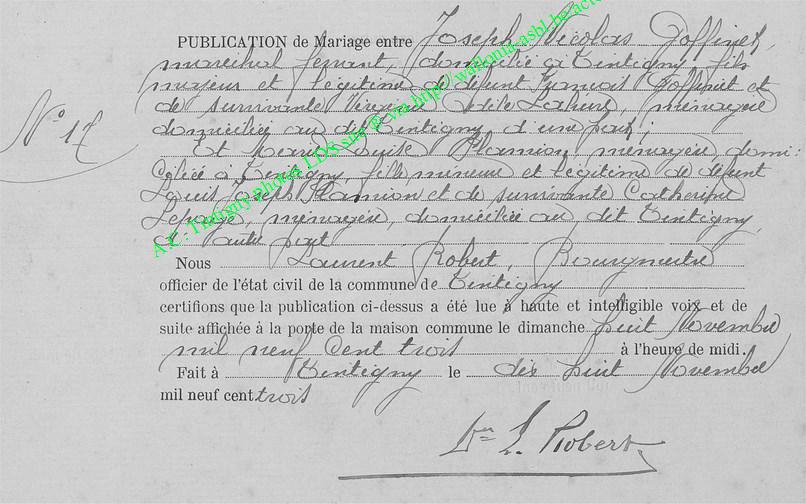 PUBLICATION de Mariage entre Joseph Nicolas Goffinet,
maréchal ferrant, domicilié à Tintigny, fils
majeur et légitime de défunt Goffinet et
de survivante Lahure, ménagère
domiciliée au dit Tintigny d'une part;
Et Marie Plamion, ménagère domi-
ciliée à Tintigny, fille mineure et légitime de défunt
Louis Joseph Plamion et de survivante Catherine
Lepage, ménagère, domiciliée au dit Tintigny,
d'autre part
N° 17
Nous Laurent Robert, Bourgmestre
officier de l'état civil de la commune de Tintigny
certifions que la publication ci-dessus a été lue à haute et intelligible voix et de
suite affichée à la porte de la maison commune le dimanche huit Novembre
mil neuf cent trois à l'heure de midi.
Fait à Tintigny le dix huit Novembre
mil neuf cent trois
L. Robert
A.C. Tintigny photos LDS site @ via http://wallonia-asbl.be/